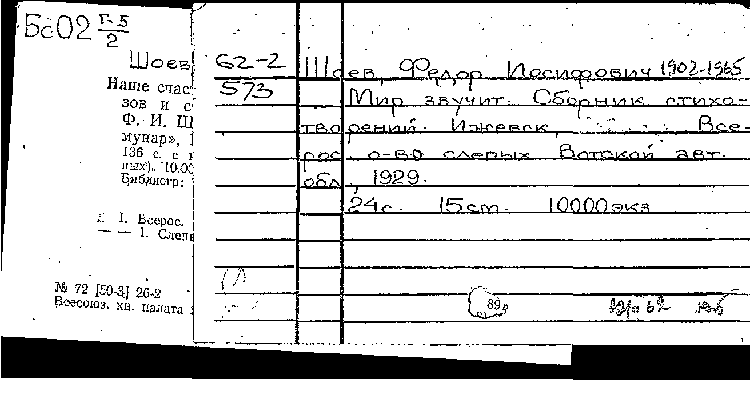 Бс02 Г-5
2
Шоев
Наше счас
зов и с
Ф. И. Ш
мунар»,
136 с. с
ных). 10.00
Библиогр:
1. Всерос.
— — 1. Слепы
№ 72 [50-3] 26-2
Всесоюз. кн. палата
62-2
573
Шоев, Федор Иосифович 1902-1965
Мир звучит. Сборник стихо-
творений. Ижевск, Все-
рос. о-во слепых Вотской авт.
обл., 1929.
24с. 15см. 10000экз
89